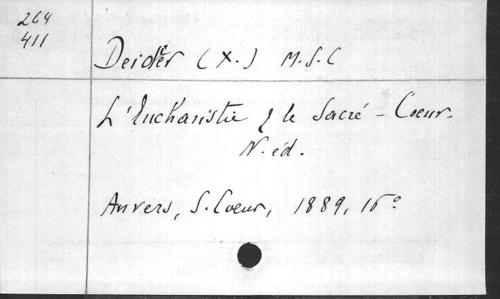 264
411
Deidier (X.) M.S.C
L'Eucharistie & le Sacré-Coeur.
N. éd.
Anvers, S. Coeur, 1889, 16°